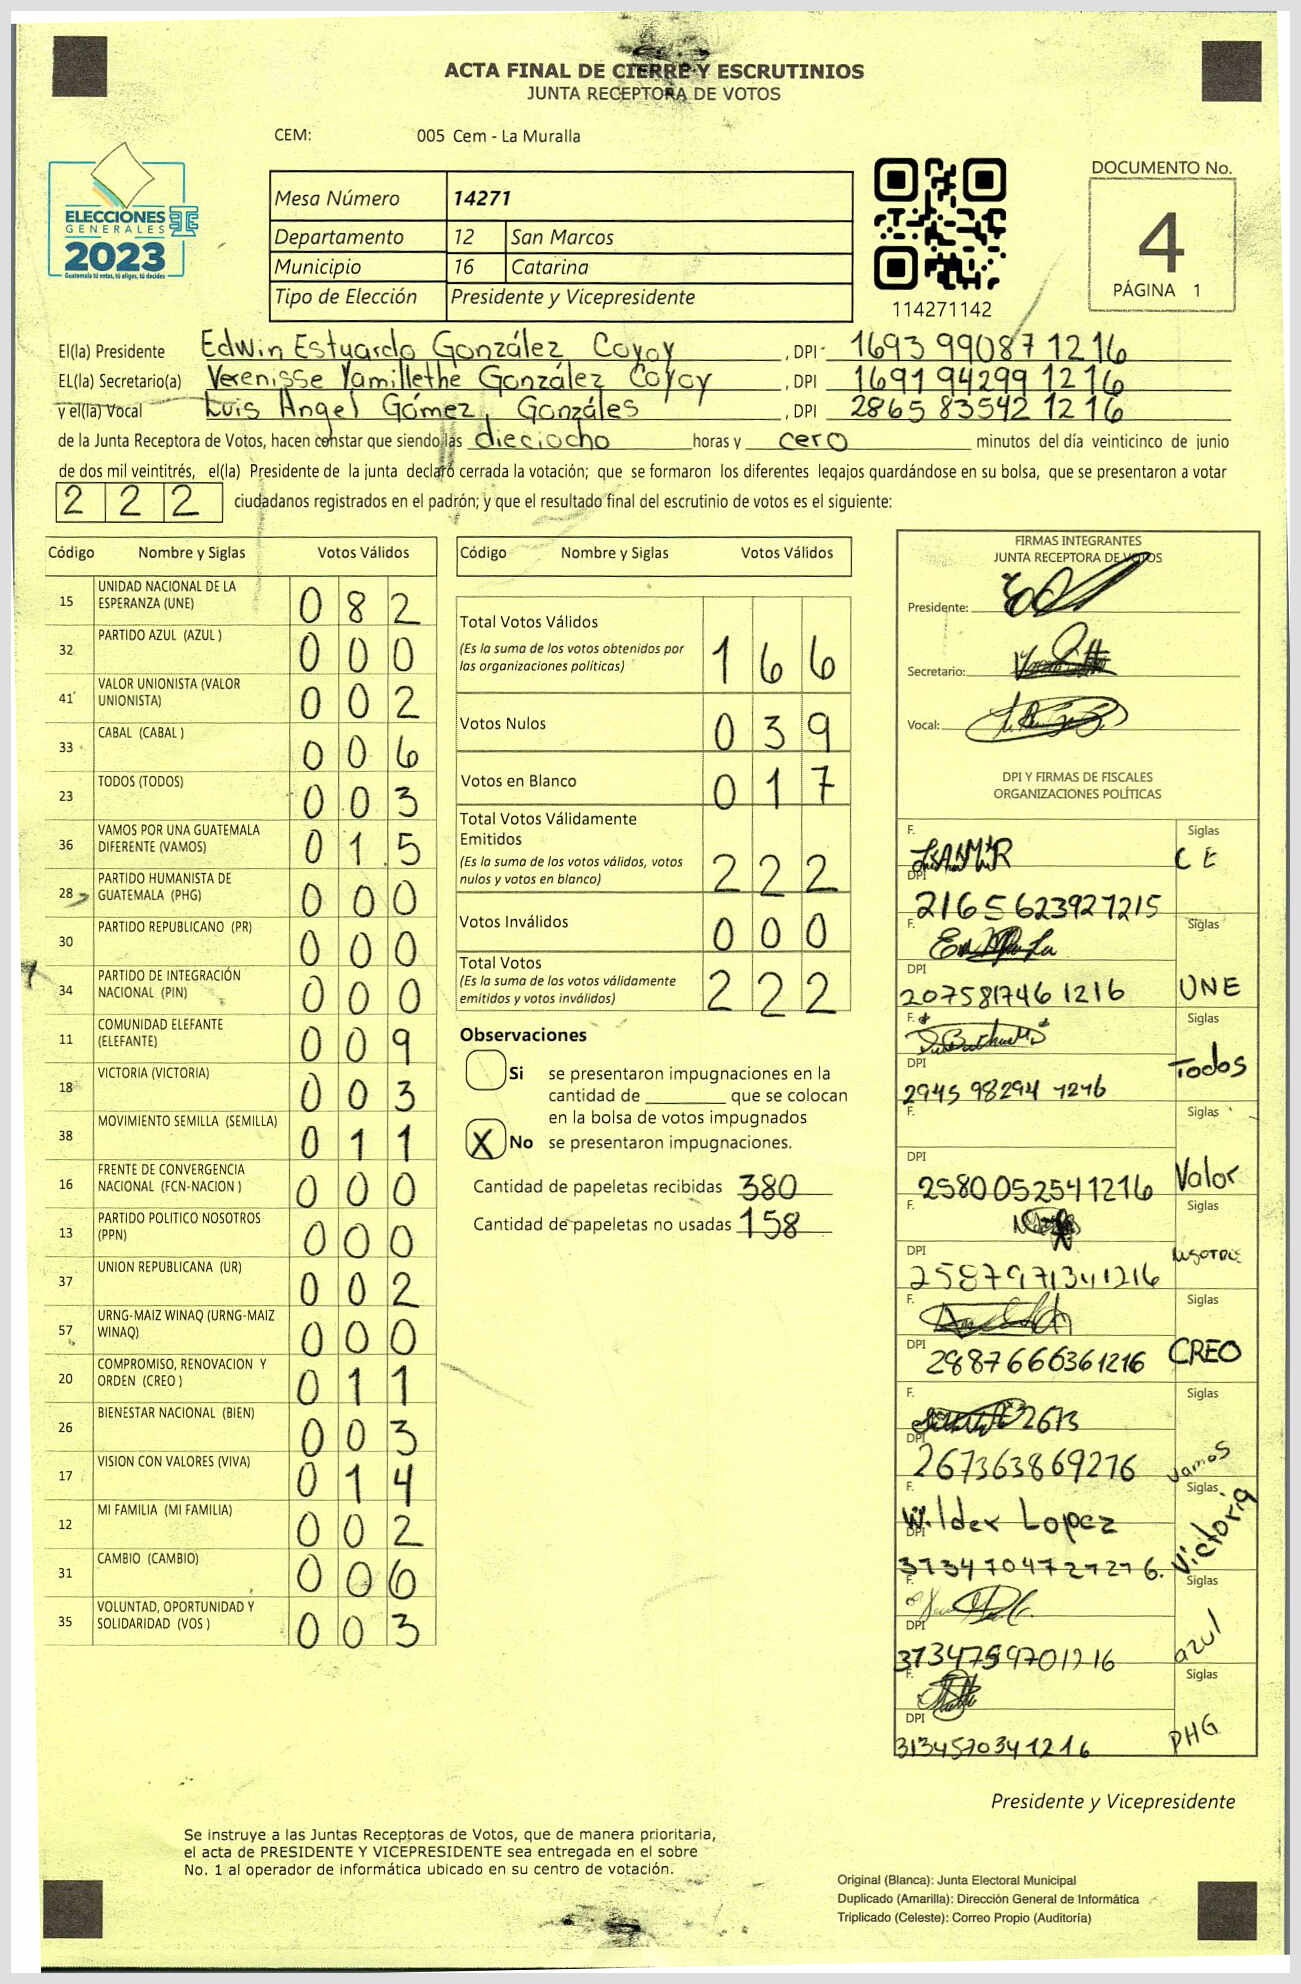 ACTA FINAL DE CIERRE Y ESCRUTINIOS
JUNTA RECEPTORA DE VOTOS
CEM: 005 Cem - La Muralla
ELECCIONES
GENERALES
2023
Guatemala tú votas, tú eliges, tú decides
Mesa Número 14271
Departamento 12 San Marcos
Municipio 16 Catarina
Tipo de Elección Presidente y Vicepresidente
114271142
DOCUMENTO No.
4
PÁGINA 1
El(la) Presidente Edwin Estuardo González Coyoy , DPI 1693 99087 1216
EL(la) Secretario(a) Verenisse Yamillethe González Coyoy , DPI 1691 94299 1216
y el(la) Vocal Luis Angel Gómez, Gonzáles , DPI 2865 83542 1216
de la Junta Receptora de Votos, hacen constar que siendo las dieciocho horas y cero minutos del día veinticinco de junio
de dos mil veintitrés, el(la) Presidente de la junta declaró cerrada la votación; que se formaron los diferentes legajos quardándose en su bolsa, que se presentaron a votar
222 ciudadanos registrados en el padrón; y que el resultado final del escrutinio de votos es el siguiente:
Código Nombre y Siglas Votos Válidos
15 UNIDAD NACIONAL DE LA ESPERANZA (UNE) 082
32 PARTIDO AZUL (AZUL ) 000
41 VALOR UNIONISTA (VALOR UNIONISTA) 002
33 CABAL (CABAL ) 006
23 TODOS (TODOS) 003
36 VAMOS POR UNA GUATEMALA DIFERENTE (VAMOS) 015
28 PARTIDO HUMANISTA DE GUATEMALA (PHG) 000
30 PARTIDO REPUBLICANO (PR) 000
34 PARTIDO DE INTEGRACIÓN NACIONAL (PIN) 000
11 COMUNIDAD ELEFANTE (ELEFANTE) 009
18 VICTORIA (VICTORIA) 003
38 MOVIMIENTO SEMILLA (SEMILLA) 011
16 FRENTE DE CONVERGENCIA NACIONAL (FCN-NACION ) 000
13 PARTIDO POLITICO NOSOTROS (PPN) 000
37 UNION REPUBLICANA (UR) 002
57 URNG-MAIZ WINAQ (URNG-MAIZ WINAQ) 000
20 COMPROMISO, RENOVACION Y ORDEN (CREO ) 011
26 BIENESTAR NACIONAL (BIEN) 003
17 VISION CON VALORES (VIVA) 014
12 MI FAMILIA (MI FAMILIA) 002
31 CAMBIO (CAMBIO) 006
35 VOLUNTAD, OPORTUNIDAD Y SOLIDARIDAD (VOS ) 003
Código Nombre y Siglas Votos Válidos
Total Votos Válidos 166
(Es la suma de los votos obtenidos por
las organizaciones políticas)
Votos Nulos 039
Votos en Blanco 017
Total Votos Válidamente
Emitidos 222
(Es la suma de los votos válidos, votos
nulos y votos en blanco)
Votos Inválidos 000
Total Votos 222
(Es la suma de los votos válidamente
emitidos y votos inválidos)
Observaciones
Si se presentaron impugnaciones en la
cantidad de ________ que se colocan
en la bolsa de votos impugnados
X No se presentaron impugnaciones.
Cantidad de papeletas recibidas 380
Cantidad de papeletas no usadas 158
FIRMAS INTEGRANTES
JUNTA RECEPTORA DE VOTOS
Presidente:
Secretario:
Vocal:
DPI Y FIRMAS DE FISCALES
ORGANIZACIONES POLÍTICAS
F. Siglas
CE
DPI
2165623927215
F. Siglas
DPI
2075817461216 UNE
F. Siglas
DPI Todos
2945 98294 1216
F. Siglas
DPI
2580052541216 Valor
F. Siglas
DPI
2587971341216
F. Siglas
DPI
2887666361216 CREO
F. Siglas
2673
DPI
267363869216 vamos
F. Siglas
Wilder Lopez
DPI
3134704721216. Victoria
F. Siglas
DPI
3134759701216 azul
F. Siglas
DPI
3134570341216 PHG
Presidente y Vicepresidente
Se instruye a las Juntas Receptoras de Votos, que de manera prioritaria,
el acta de PRESIDENTE Y VICEPRESIDENTE sea entregada en el sobre
No. 1 al operador de informática ubicado en su centro de votación.
Original (Blanca): Junta Electoral Municipal
Duplicado (Amarilla): Dirección General de Informática
Triplicado (Celeste): Correo Propio (Auditoría)